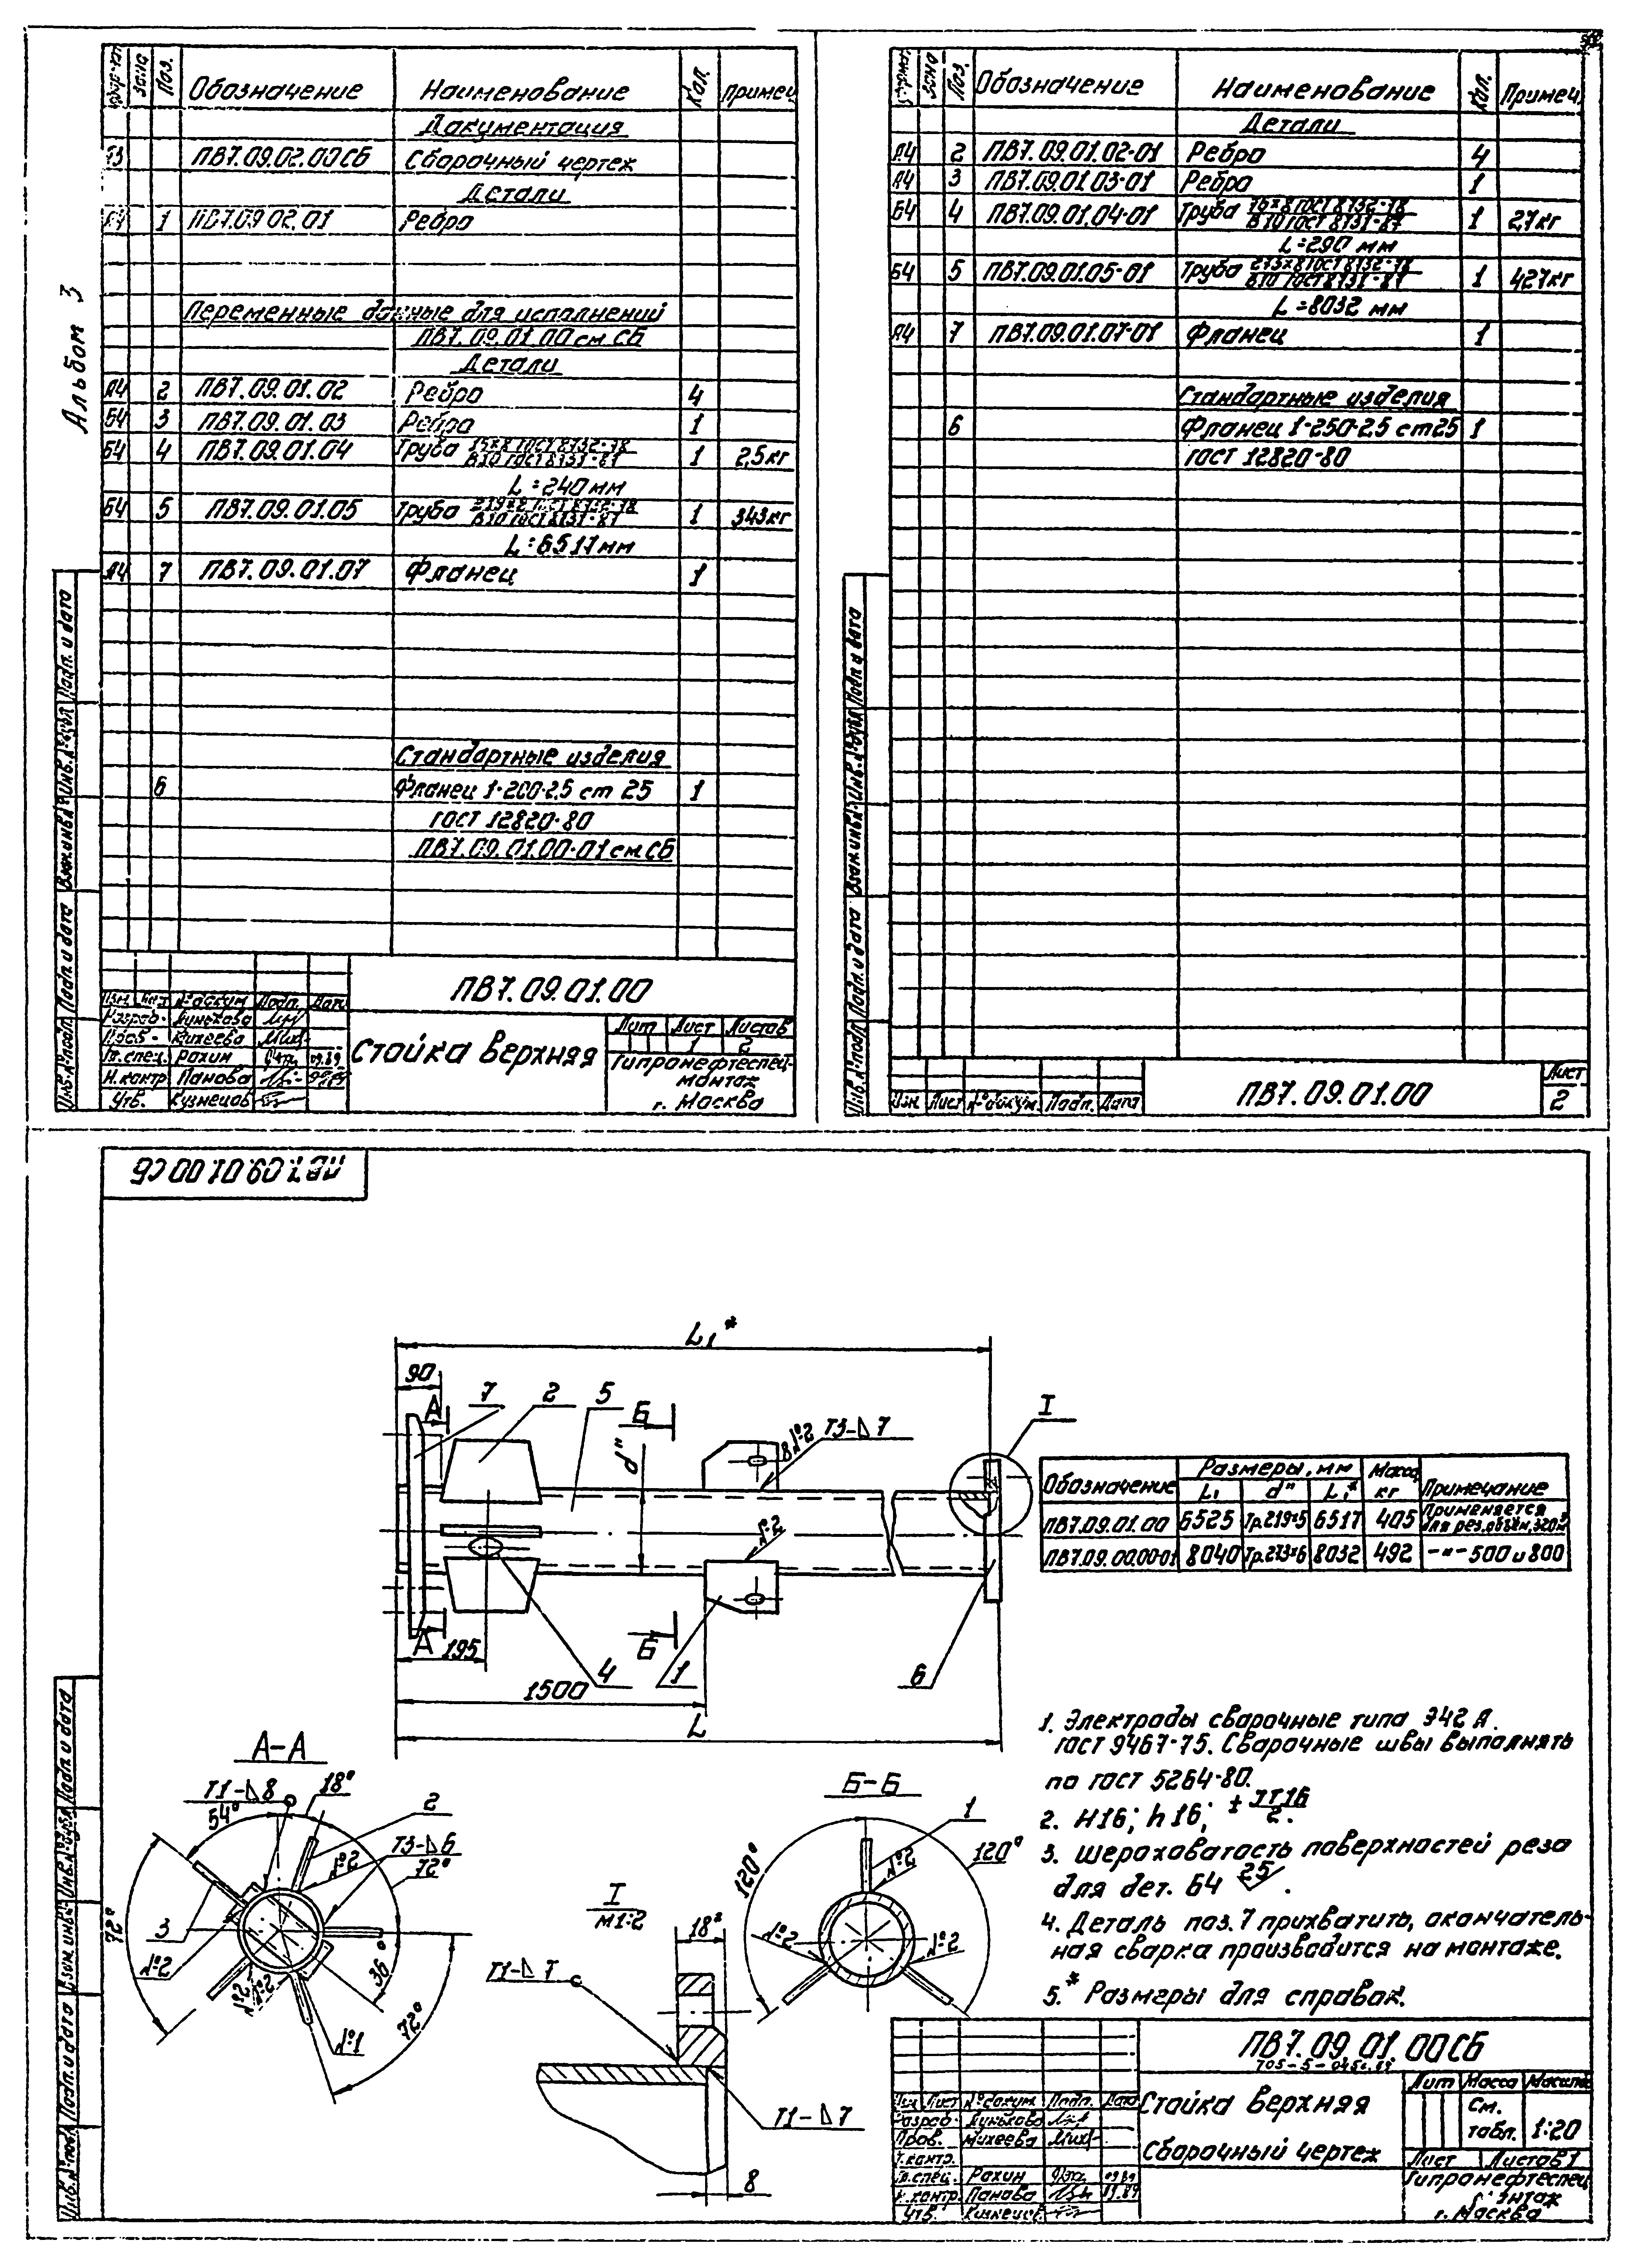 Альбом 3
Зона Поз. Обозначение Наименование Кол. Примеч.
Документация
ПВ7.09.02.00СБ Сборочный чертеж
Детали
1 ПВ7.09.02.01 Ребро
Переменные данные для исполнений
ПВ7.09.01.00 см СБ
Детали
А4 2 ПВ7.09.01.02 Ребро 4
Б4 3 ПВ7.09.01.03 Ребро 1
Б4 4 ПВ7.09.01.04 Труба 75×8 ГОСТ 8732-78 1 2,5кг
В10 ГОСТ 8731-87
L=240мм
Б4 5 ПВ7.09.01.05 Труба 219×8 ГОСТ 8732-78 1 343кг
В10 ГОСТ 8731-87
L=6517мм
А4 7 ПВ7.09.01.07 Фланец 1
Стандартные изделия
6 Фланец 1-200-2,5 ст 25 1
ГОСТ 12820-80
ПВ7.09.01.00-01 см СБ
ПВ7.09.01.00
Изм Лист №докум Подп. Дата
Разраб. Лунькова
Пров. Михеева
Гл.спец. Рахин 09.89
Н.контр Панова
Утв. Кузнецов
Стойка верхняя
Лит Лист Листов
1 2
Гипронефтеспец-
монтаж
г. Москва
Инв.№подл. Подп. и дата Взам.инв.№ Инв.№дубл Подп. и дата
Зона Поз. Обозначение Наименование Кол. Примеч.
Детали
А4 2 ПВ7.09.01.02-01 Ребро 4
А4 3 ПВ7.09.01.03-01 Ребро 1
Б4 4 ПВ7.09.01.04-01 Труба 75×8 ГОСТ 8732-78 1 2,7кг
В10 ГОСТ 8731-87
L=290 мм
Б4 5 ПВ7.09.01.05-01 Труба 273×8 ГОСТ 8732-78 1 427кг
В10 ГОСТ 8731-87
L=8032 мм
А4 7 ПВ7.09.01.07-01 Фланец 1
Стандартные изделия
6 Фланец 1-250-2,5 ст25 1
ГОСТ 12820-80
Изм Лист №докум. Подп. Дата
ПВ7.09.01.00
Лист
2
Инв.№подл Подп. и дата Взам.инв.№ Инв.№дубл Подп. и дата
ПВ7.09.01.00СБ
L₁*
90
А 7 2 5 Б
d"
8 №2 Т3-△7
I
№2
А 195 Б
4 1 6
1500
L
Обозначение Размеры, мм Масса, кг Примечание
L₁ d" L₁*
ПВ7.09.01.00 6525 Тр.219×5 6517 405 Применяется для рез.объём.320м³
ПВ7.09.00.00-01 8040 Тр.273×6 8032 492 -"- 500 и 800
А-А
Т1-△8 18°
54° 2
№2 Т3-△6
72°
72°
3
№2
№2 №2
36°
72°
№1
Б-Б
1
120° №2 120°
№2 №2
I
М1:2
18*
Т1-△7
Т1-△7
8
1. Электроды сварочные типа Э42А.
ГОСТ 9467-75. Сварочные швы выполнять
по ГОСТ 5264-80.
2. Н16; h16; ± IT16/2.
3. Шероховатость поверхностей реза
для дет. Б4 25.
4. Деталь поз. 7 прихватить, окончатель-
ная сварка производится на монтаже.
5.* Размеры для справок.
ПВ7.09.01.00СБ
Изм Лист №докум. Подп. Дата
Разраб. Лунькова
Пров. Михеева
Т.контр.
Гл.спец. Рахин 09.89
Н.контр. Панова 09.89
Утв. Кузнецов
Стойка верхняя
Сборочный чертеж
Лит Масса Масштаб
См.
табл. 1:20
Лист Листов 1
Гипронефтеспец
монтаж
г. Москва
Инв.№подл. Подп. и дата Взам.инв.№ Инв.№дубл Подп. и дата